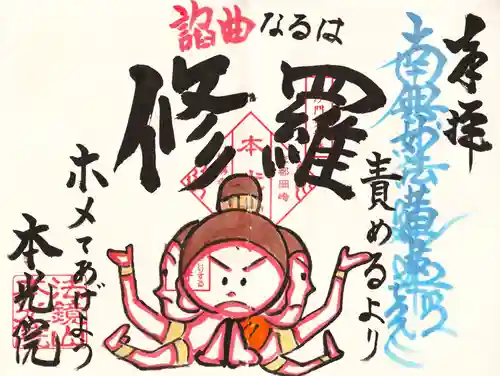 奉拝
南無妙法蓮華経
諂曲なるは
修羅
責めるより
ホメてあげよう
本光院
法鏡山